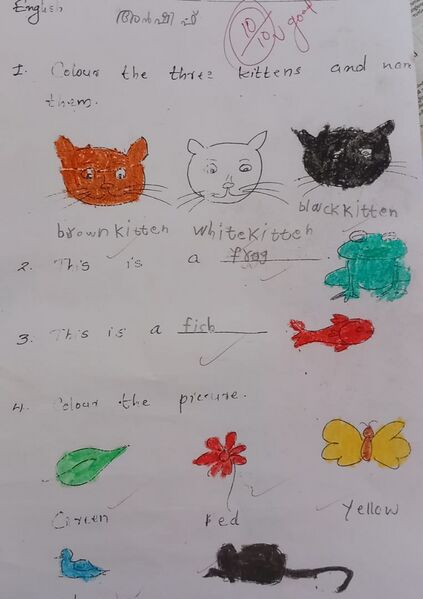 English
10/10 good
1. Colour the three kittens and nam
them.
brown kitten white kitten black kitten
2. This is a frog
3. This is a fish
4. Colour the picture.
Green Red Yellow